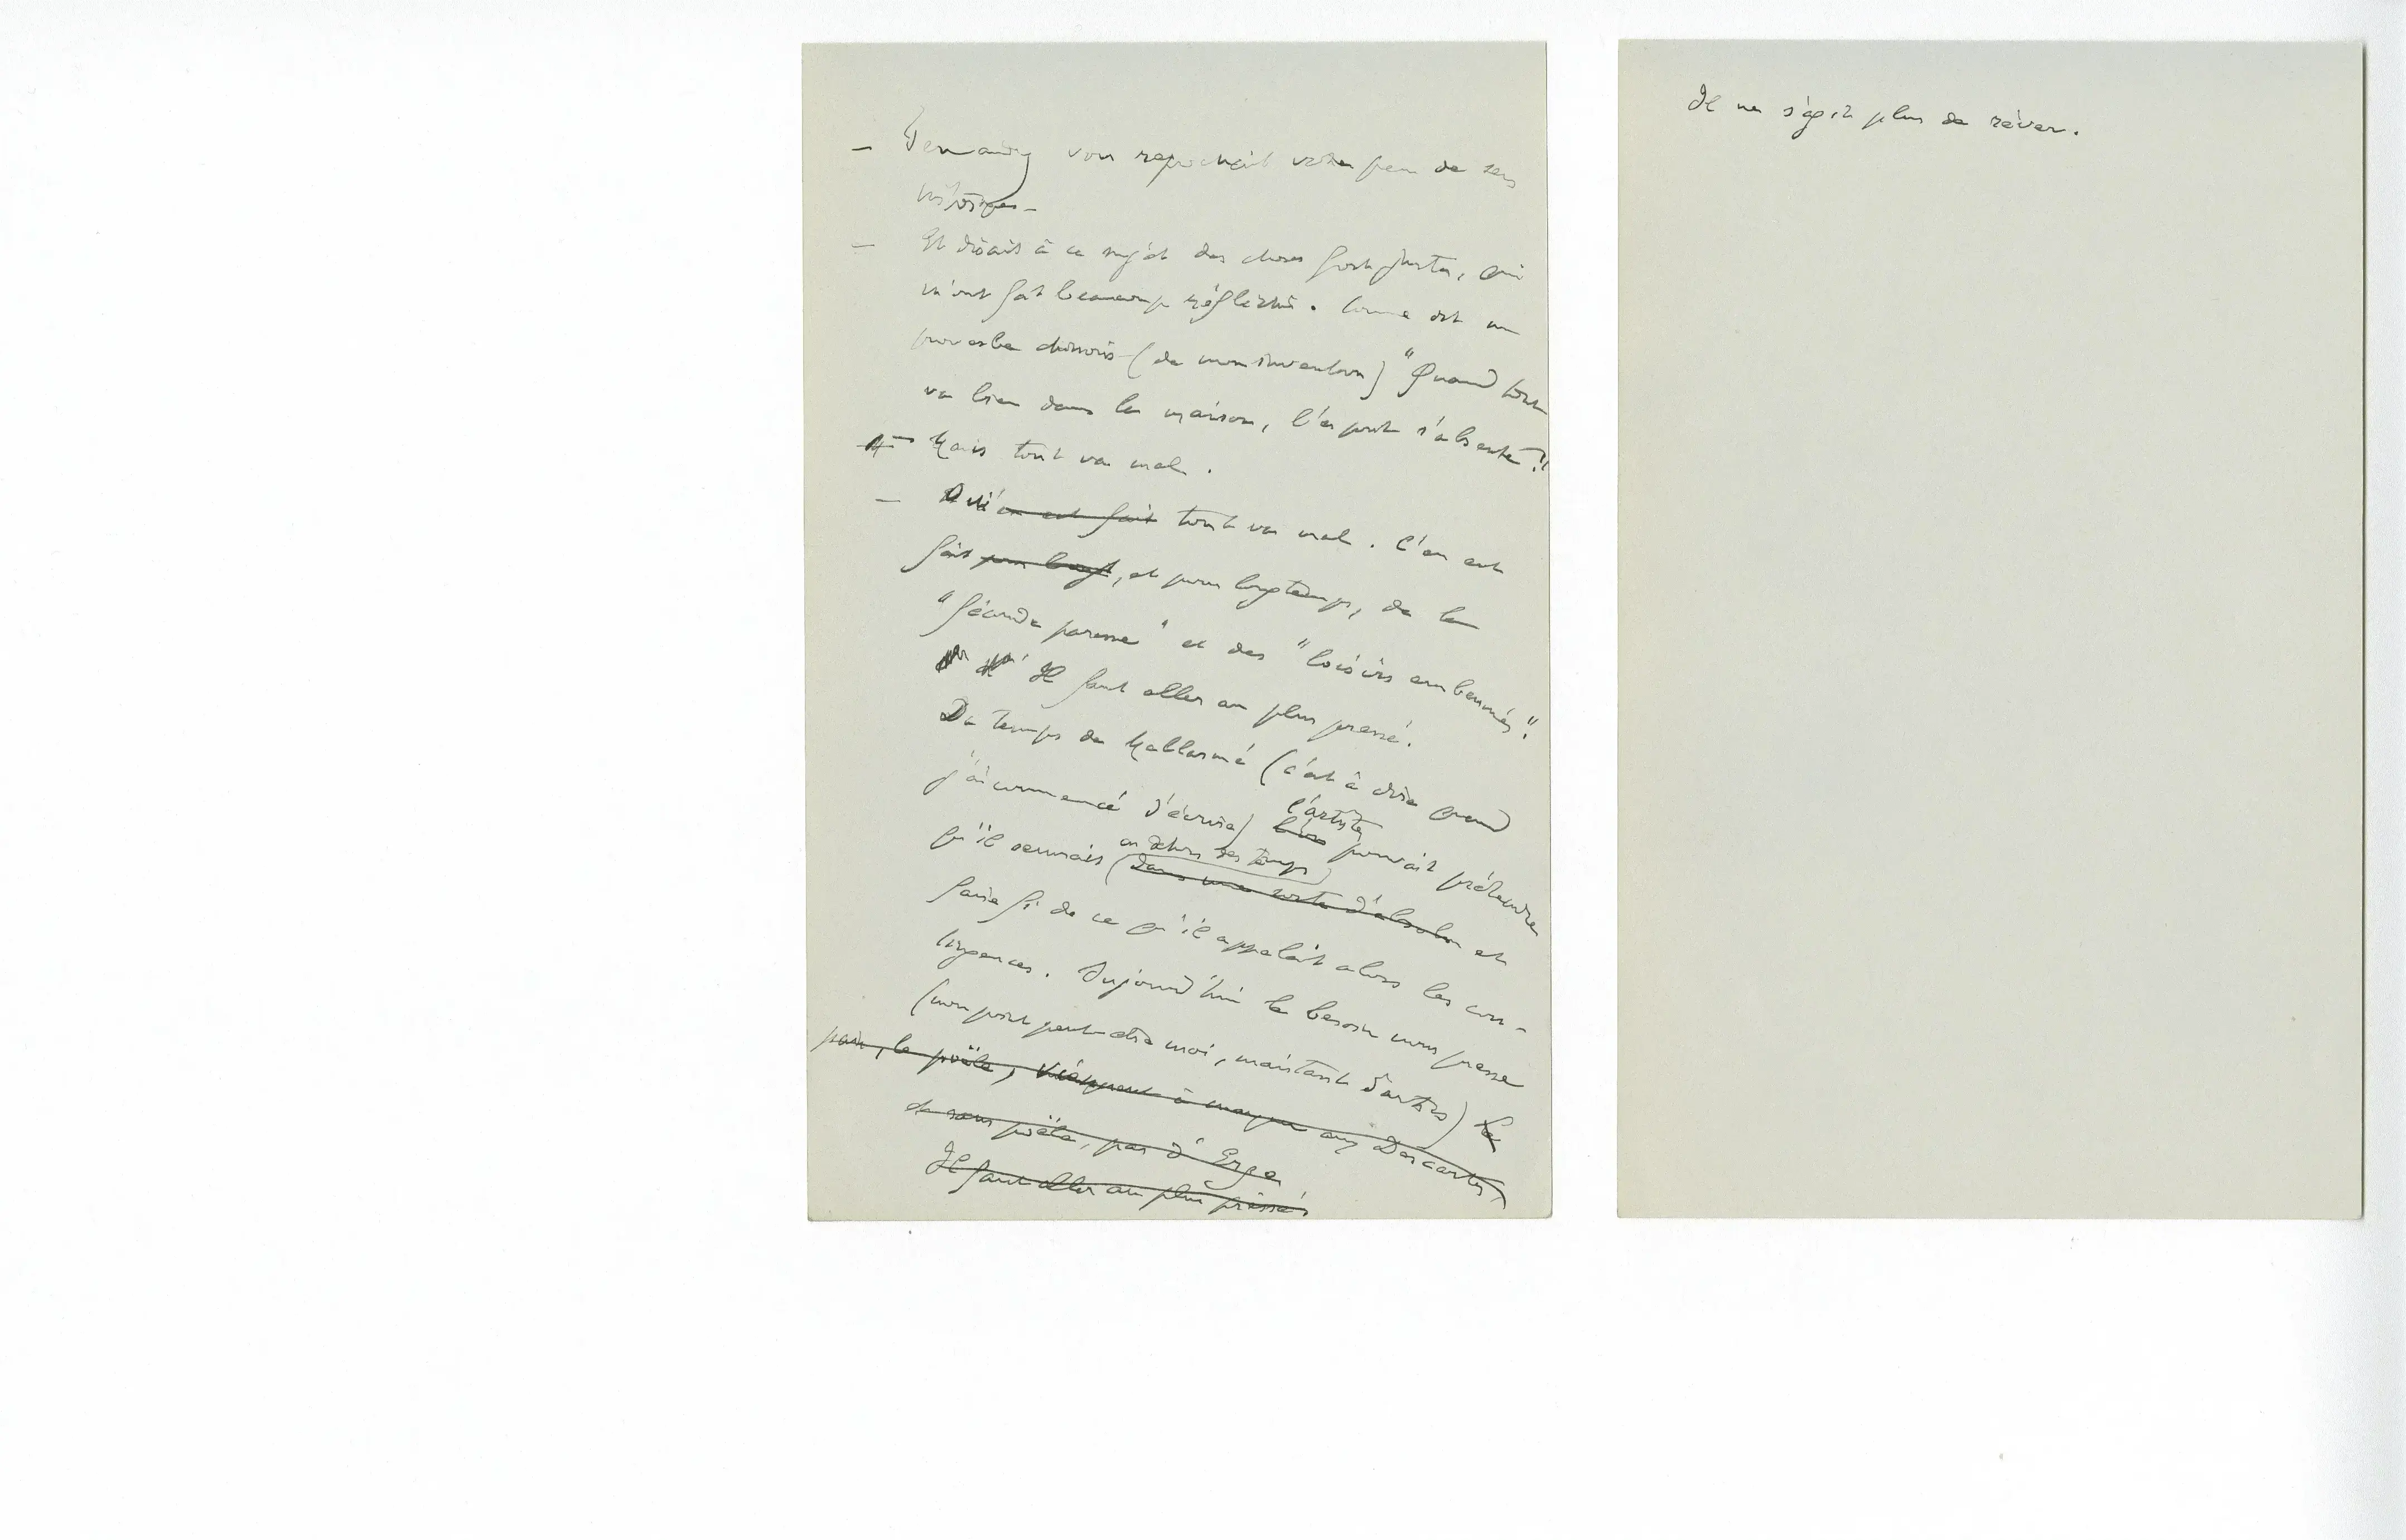 — Fernandez vous reprochait votre peu de sens
historique —
— Et disait à ce sujet des choses fort justes, qui
m'ont fait beaucoup réfléchir. Comme dit un
proverbe chinois (de mon invention) "Quand tout
va bien dans la maison, l'esprit s'absente".
— Mais tout va mal.
— Oui en est fait tout va mal. C'en est
fait pour longt, et pour longtemps, de la
"féconde paresse" et des "loisirs embaumés".
Il faut aller au plus pressé.
Du temps de Mallarmé (c'est à dire quand
j'ai commencé d'écrire) l'artiste pouvait prétendre
qu'il œuvrait (en dehors des temps) dans une sorte d'absolu et
faire fi de ce qu'il appelait alors les con-
tingences. Aujourd'hui le besoin nous presse
(non point peut-être moi, maintenant d'autres) Le
pain, le poêle, viennent à manquer aux Descartes
et sans poêle, pas d'Ergo
Il faut aller au plus pressé
Il ne s'agit plus de rêver.